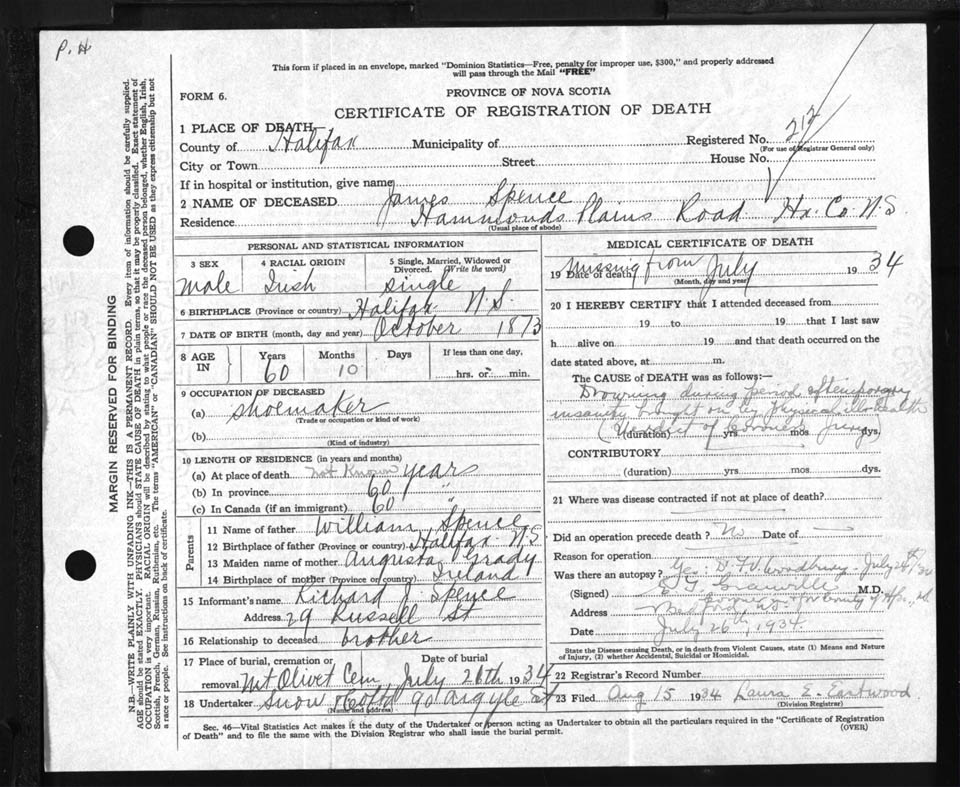 P. H
This form if placed in an envelope, marked "Dominion Statistics—Free, penalty for improper use, $300," and properly addressed
will pass through the Mail "FREE"
PROVINCE OF NOVA SCOTIA
FORM 6.
CERTIFICATE OF REGISTRATION OF DEATH
1 PLACE OF DEATH
Registered No. 212
(For use of Registrar General only)
County of Halifax Municipality of
City or Town Street House No.
If in hospital or institution, give name
2 NAME OF DECEASED James Spence
Residence Hammonds Plains Road Hx. Co. N.S.
(Usual place of abode)
PERSONAL AND STATISTICAL INFORMATION
3 SEX 4 RACIAL ORIGIN 5 Single, Married, Widowed or
Divorced. (Write the word)
male Irish single
6 BIRTHPLACE (Province or country) Halifax N.S.
7 DATE OF BIRTH (month, day and year) October 1873
8 AGE IN Years Months Days If less than one day,
60 10 hrs. or min.
9 OCCUPATION OF DECEASED
(a) Shoemaker
(Trade or occupation or kind of work)
(b)
(Kind of industry)
10 LENGTH OF RESIDENCE (in years and months)
(a) At place of death not Known years
(b) In province 60 "
(c) In Canada (if an immigrant) 60
Parents
11 Name of father William Spence
12 Birthplace of father (Province or country) Halifax N.S.
13 Maiden name of mother Augusta Grady
14 Birthplace of mother (Province or country) Ireland
15 Informant's name Richard J Spence
Address 29 Russell St
16 Relationship to deceased brother
17 Place of burial, cremation or Date of burial
removal Mt Olivet Cem July 26th 1934
18 Undertaker Snow & Co Ltd 90 Argyle St
(Name and address)
MEDICAL CERTIFICATE OF DEATH
19 Date of death Missing from July 1934
(Month, day and year)
20 I HEREBY CERTIFY that I attended deceased from
19 to 19 that I last saw
h alive on 19 and that death occurred on the
date stated above, at m.
The CAUSE of DEATH was as follows:—
Drowning during period of temporary
insanity brought on by physical ill health
(Verdict of Coroners Jury)
(duration) yrs. mos. dys.
CONTRIBUTORY
(duration) yrs. mos. dys.
21 Where was disease contracted if not at place of death?
Did an operation precede death? No Date of
Reason for operation
Was there an autopsy? Yes. D. F. V. Woodbury. July 26th/34
(Signed) M.D.
Address Bedford, N.S.
Date July 26th, 1934
State the Disease causing Death, or in death from Violent Causes, state (1) Means and Nature
of Injury, (2) whether Accidental, Suicidal or Homicidal.
22 Registrar's Record Number
23 Filed Aug 15 1934 Laura E. Eastwood
(Division Registrar)
Sec. 46—Vital Statistics Act makes it the duty of the Undertaker or person acting as Undertaker to obtain all the particulars required in the "Certificate of Registration
of Death" and to file the same with the Division Registrar who shall issue the burial permit.
(OVER)
MARGIN RESERVED FOR BINDING
N.B.—WRITE PLAINLY WITH UNFADING INK—THIS IS A PERMANENT RECORD. Every item of information should be carefully supplied.
AGE should be stated EXACTLY. PHYSICIANS should STATE CAUSE OF DEATH in plain terms, so that it may be properly classified. Exact statement of
OCCUPATION is very important. RACIAL ORIGIN will be described by stating to what people or race the deceased person belonged, whether English, Irish,
Scottish, French, German, Russian, Ruthenian, etc. The terms "AMERICAN" or "CANADIAN" SHOULD NOT BE USED as they express citizenship but not
a race or people. See instructions on back of certificate.